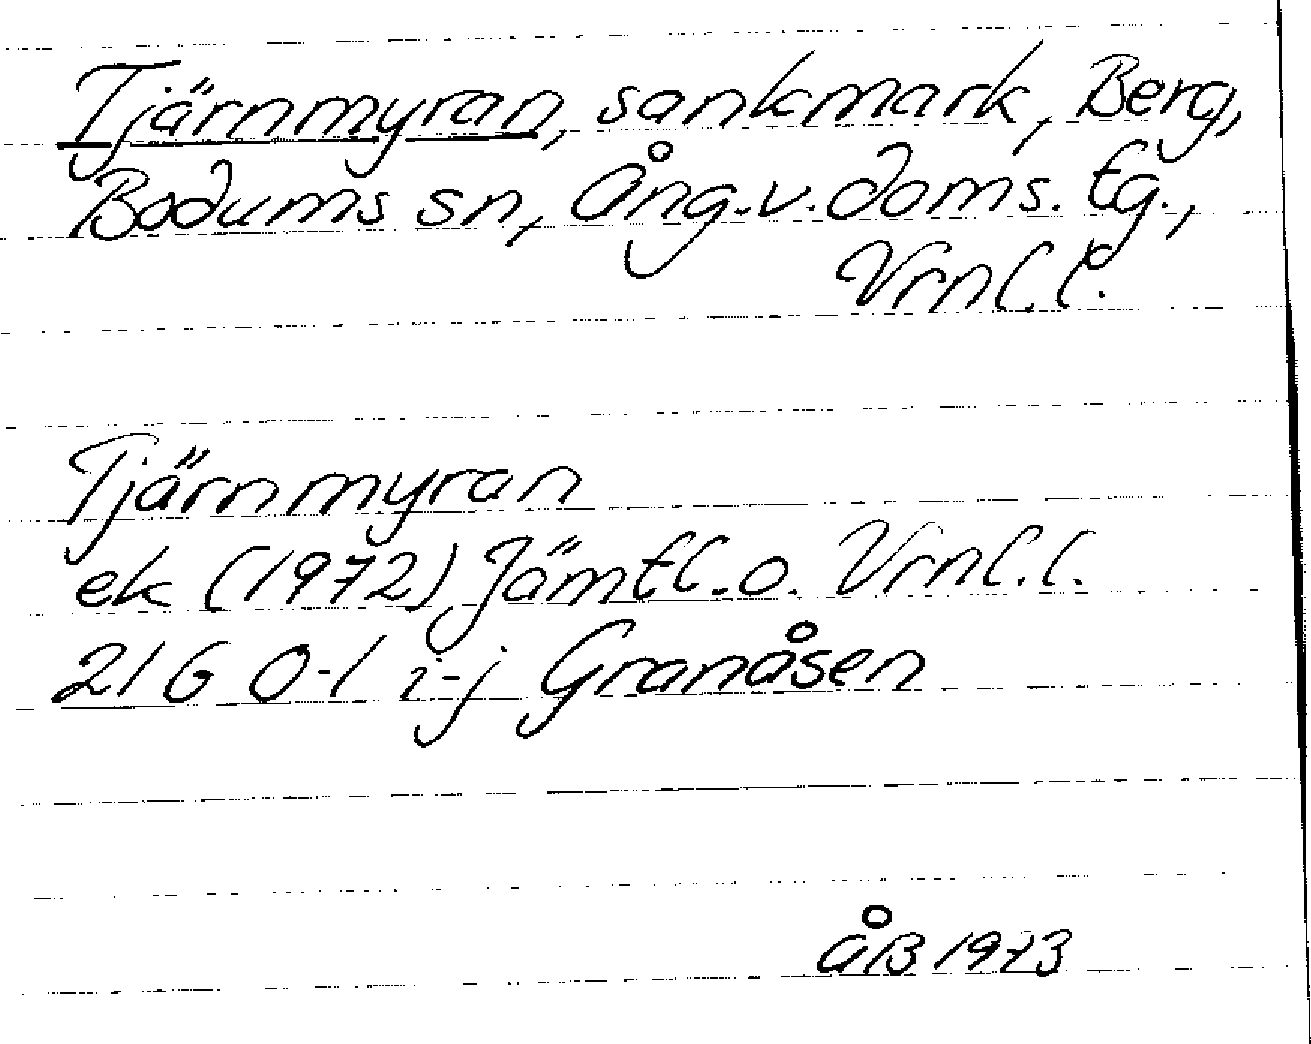 Tjärnmyran, sankmark, Berg,
Bodums sn, Ång.v.doms.tg.,
Vrnl.l.
Tjärnmyran
ek (1972) Jämtl.o. Vrnl.l.
21G 0-1 i-j Granåsen
ÅB 1973